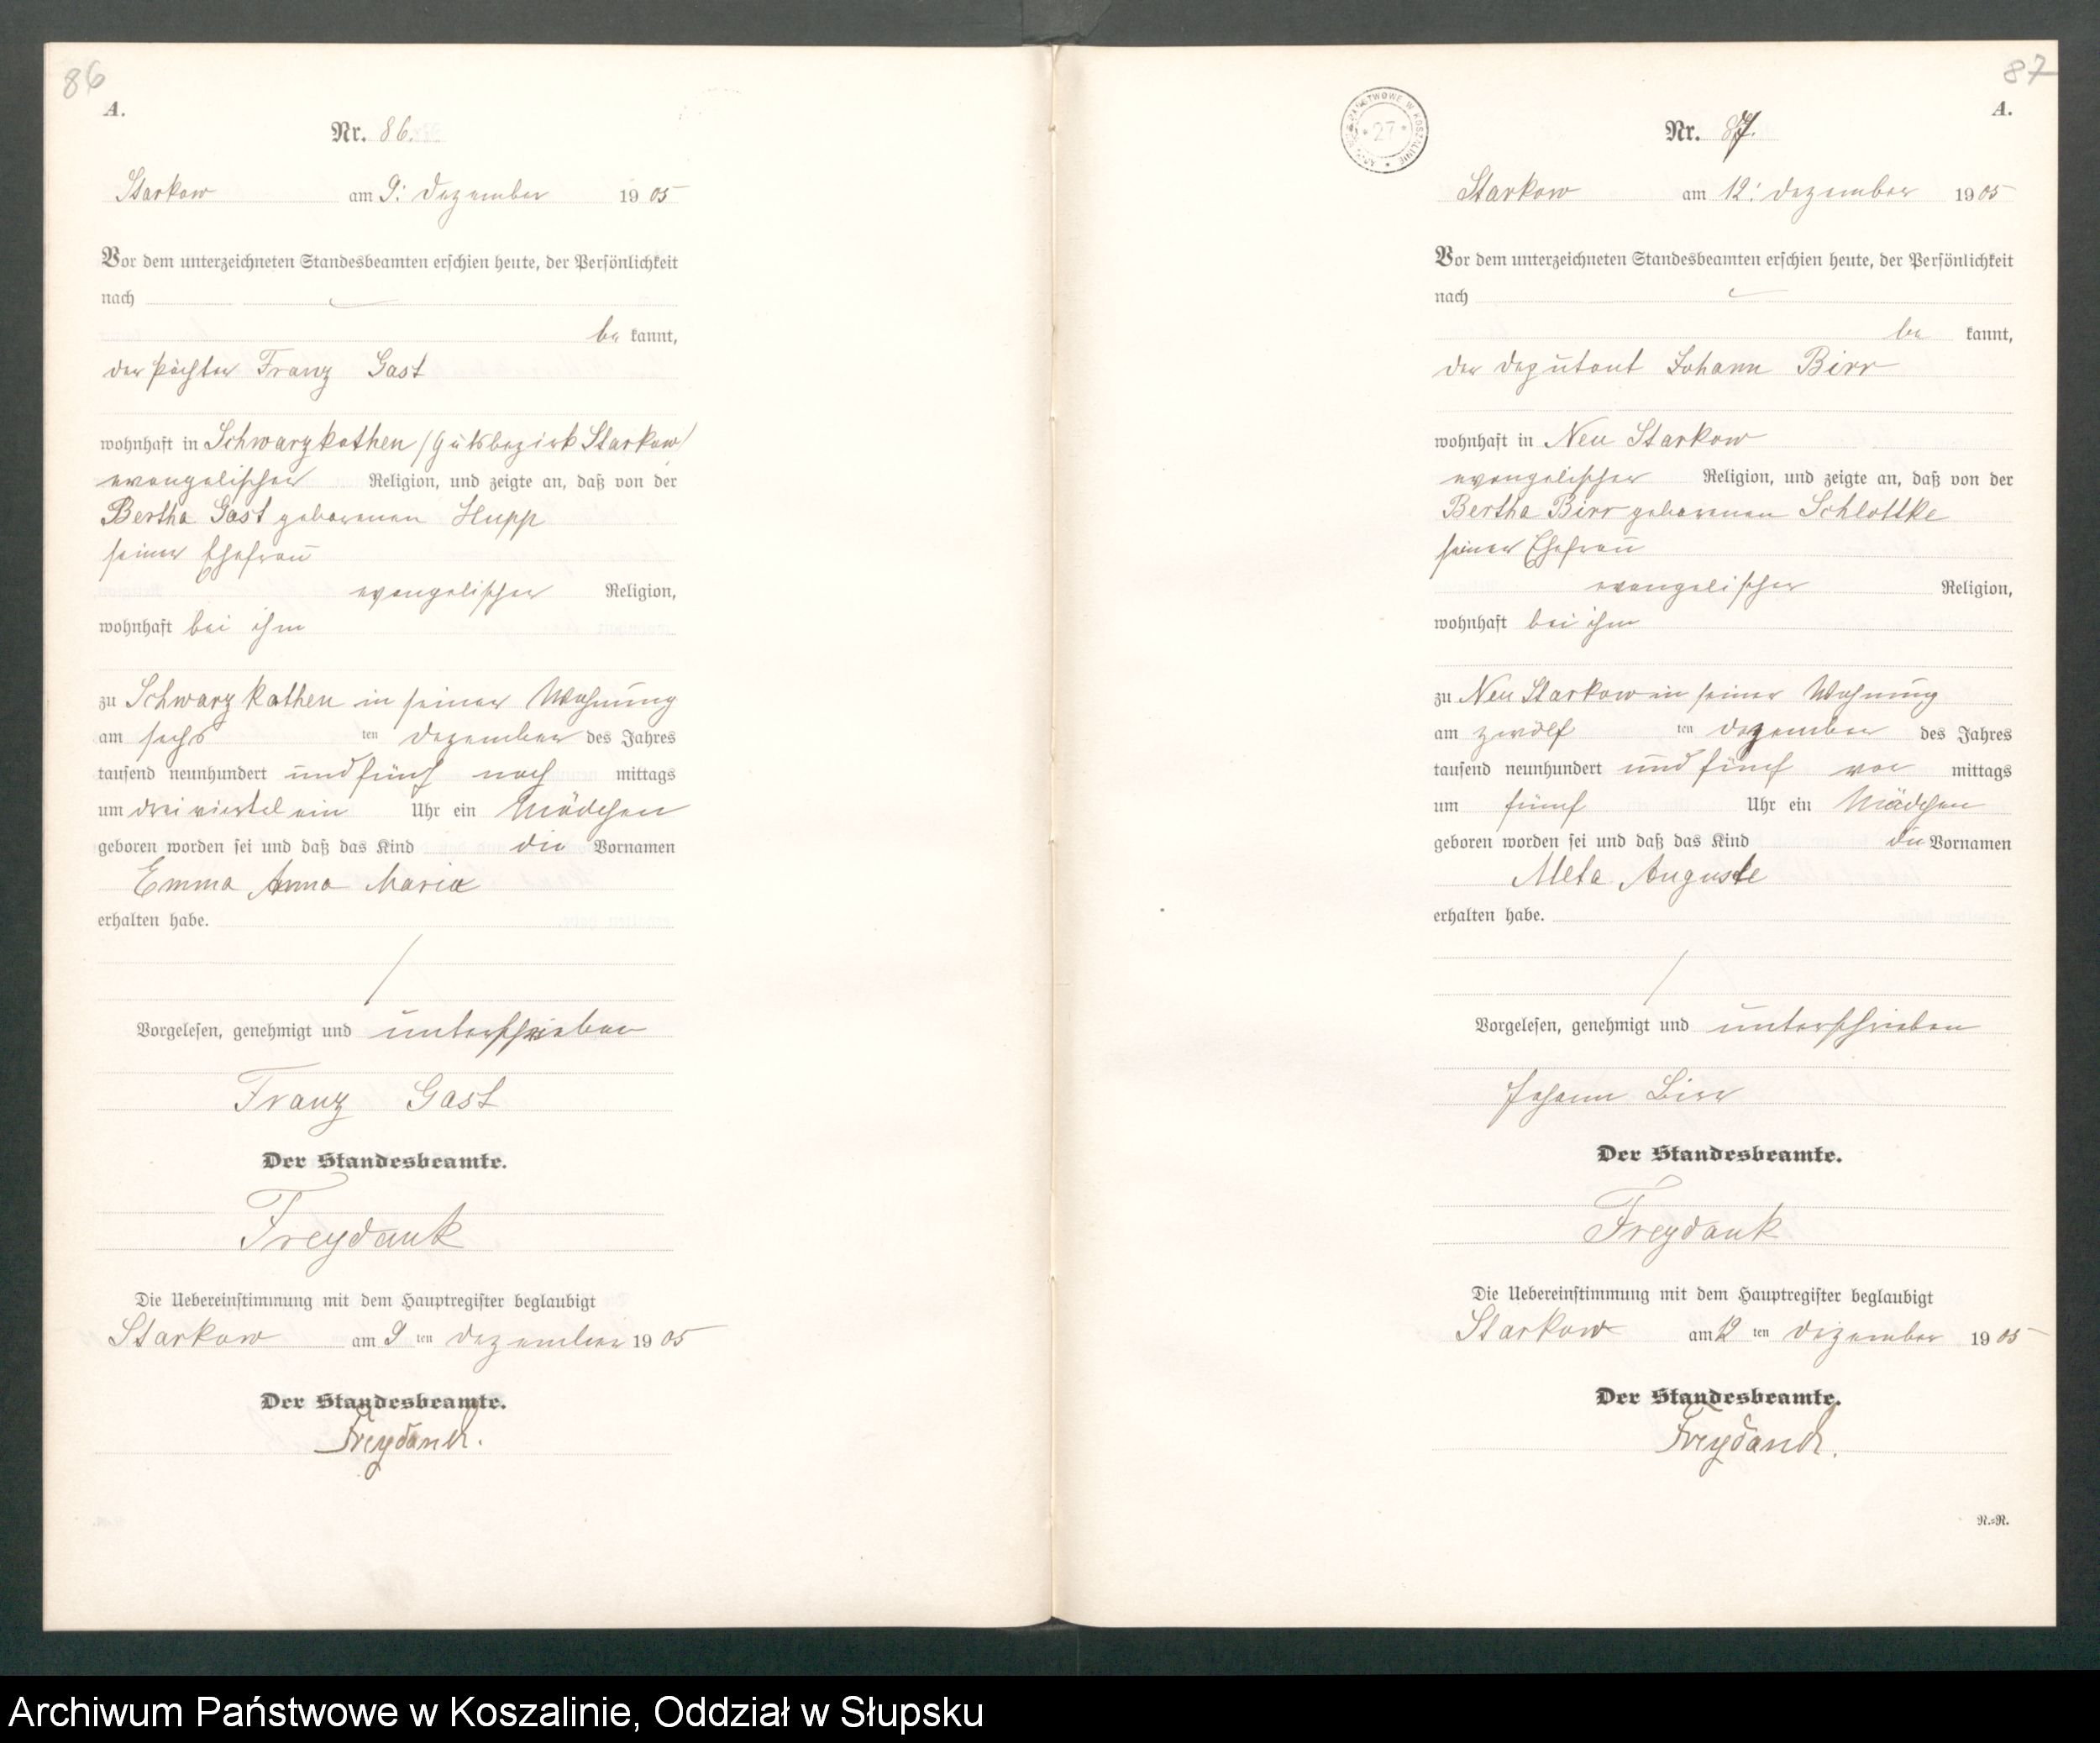 86
A.
Nr. 86.
Starkow am 9: Dezember 1905
Vor dem unterzeichneten Standesbeamten erschien heute, der Persönlichkeit
nach
be kannt,
der Pächter Franz Gast
wohnhaft in Schwarzkathen /Gutsbezirk Starkow/
evangelischer Religion, und zeigte an, daß von der
Bertha Gast geborenen Hupp
seiner Ehefrau
evangelischer Religion,
wohnhaft bei ihm
zu Schwarzkathen in seiner Wohnung
am sechs ten Dezember des Jahres
tausend neunhundert und fünf nach mittags
um dreiviertel ein Uhr ein Mädchen
geboren worden sei und daß das Kind die Vornamen
Emma Anna Maria
erhalten habe.
Vorgelesen, genehmigt und unterschrieben
Franz Gast
Der Standesbeamte.
Freydank
Die Uebereinstimmung mit dem Hauptregister beglaubigt
Starkow am 9 ten Dezember 1905
Der Standesbeamte.
Freydank.
87
A.
27
Nr. 87.
Starkow am 12: Dezember 1905
Vor dem unterzeichneten Standesbeamten erschien heute, der Persönlichkeit
nach
be kannt,
der Deputant Johann Birr
wohnhaft in Neu Starkow
evangelischer Religion, und zeigte an, daß von der
Bertha Birr geborenen Schlottke
seiner Ehefrau
evangelischer Religion,
wohnhaft bei ihm
zu Neu Starkow in seiner Wohnung
am zwölf ten Dezember des Jahres
tausend neunhundert und fünf vor mittags
um fünf Uhr ein Mädchen
geboren worden sei und daß das Kind die Vornamen
Meta Auguste
erhalten habe.
Vorgelesen, genehmigt und unterschrieben
Johann Birr
Der Standesbeamte.
Freydank
Die Uebereinstimmung mit dem Hauptregister beglaubigt
Starkow am 12 ten Dezember 1905
Der Standesbeamte.
Freydank.
N.=R.
Archiwum Państwowe w Koszalinie, Oddział w Słupsku